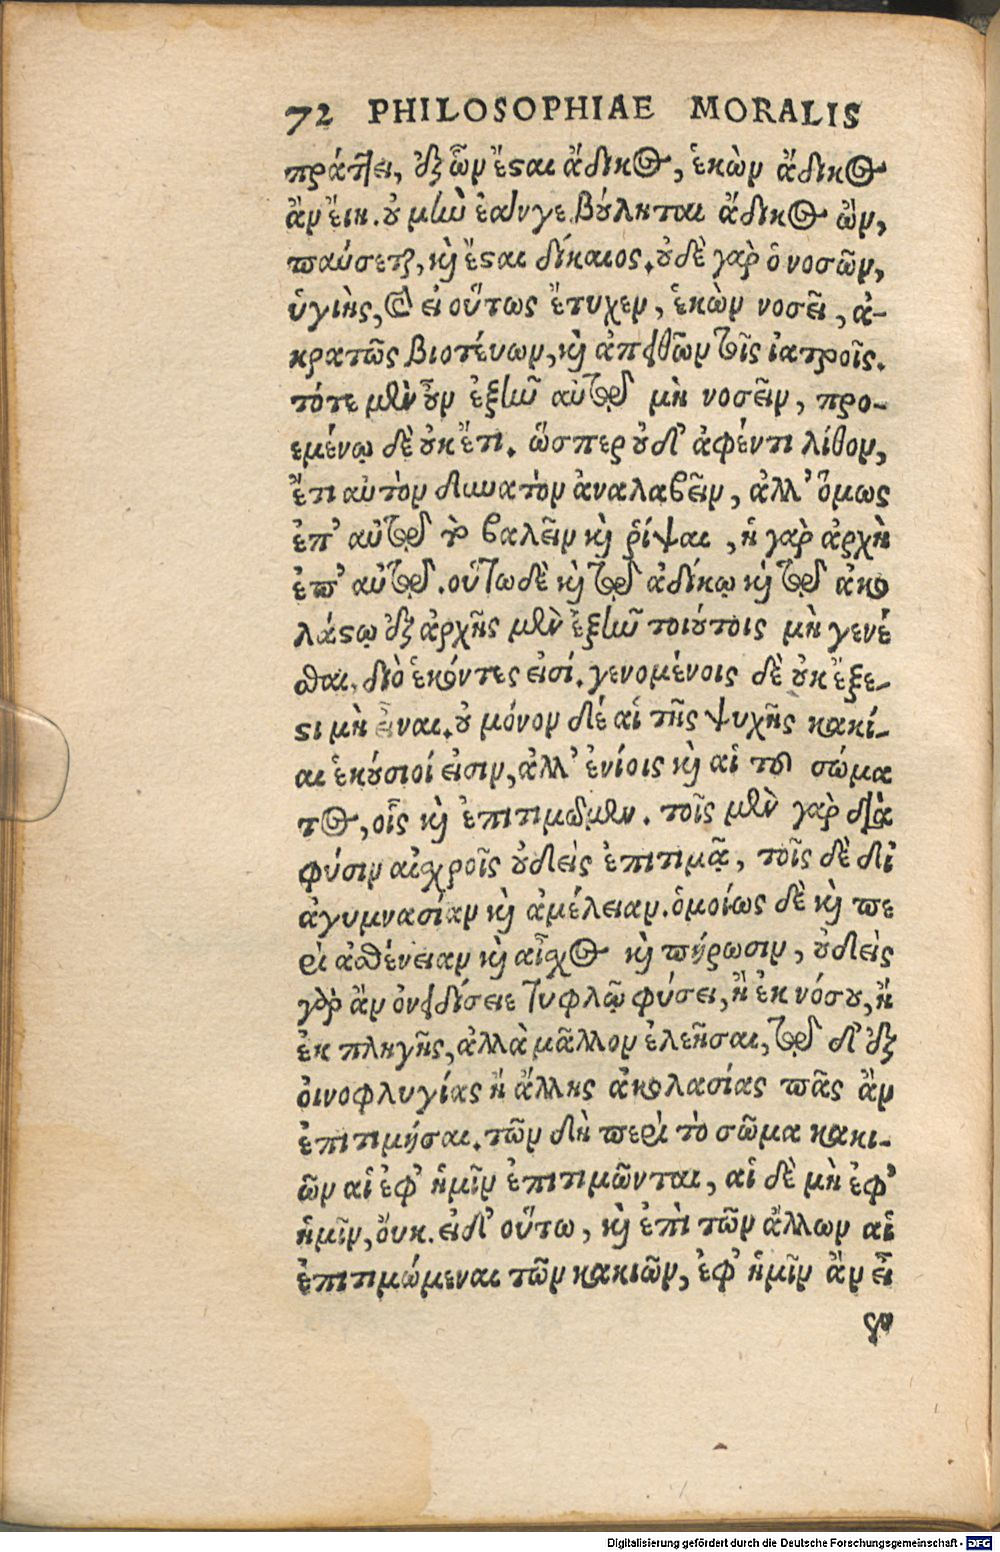 72 PHILOSOPHIAE MORALIS
πράττει, ἐξ ὧν ἔσαι ἄδικος, ἑκὼν ἄδικος
ἂν εἴη. οὐ μὴν ἐάνγε βούληται ἄδικος ὢν,
παύσεται, καὶ ἔσται δίκαιος. οὐδὲ γὰρ ὁ νοσῶν,
ὑγιὴς, καὶ εἰ οὕτως ἔτυχεν, ἑκὼν νοσεῖ, ἀ-
κρατῶς βιοτεύων, καὶ ἀπειθῶν τοῖς ἰατροῖς.
τότε μὲν οὖν ἐξῆν αὐτῷ μὴ νοσεῖν, προ-
εμένῳ δὲ οὐκ ἔτι. ὥσπερ οὐδ' ἀφέντι λίθον,
ἔτι αὐτὸν δυνατὸν ἀναλαβεῖν, ἀλλ' ὅμως
ἐπ' αὐτῷ τὸ βαλεῖν καὶ ῥίψαι, ἡ γὰρ ἀρχὴ
ἐπ' αὐτῷ. οὕτω δὲ καὶ τῷ ἀδίκῳ καὶ τῷ ἀκο
λάστῳ ἐξ ἀρχῆς μὲν ἐξῆν τοιούτοις μὴ γενέ
σθαι, διὸ ἑκόντες εἰσί. γενομένοις δὲ οὐκ ἔξε-
στι μὴ εἶναι. οὐ μόνον δέ αἱ τῆς ψυχῆς κακί-
αι ἑκούσιοί εἰσιν, ἀλλ' ἐνίοις καὶ αἱ τοῦ σώμα
τος, οἷς καὶ ἐπιτιμῶμεν. τοῖς μὲν γὰρ διὰ
φύσιν αἰσχροῖς οὐδεὶς ἐπιτιμᾷ, τοῖς δὲ δι'
ἀγυμνασίαν καὶ ἀμέλειαν. ὁμοίως δὲ καὶ πε
ρὶ ἀσθένειαν καὶ αἶσχος καὶ πήρωσιν, οὐδεὶς
γὰρ ἂν ὀνειδίσειε τυφλῷ φύσει, ἢ ἐκ νόσου, ἢ
ἐκ πληγῆς, ἀλλὰ μᾶλλον ἐλεῆσαι, τῷ δ' ἐξ
οἰνοφλυγίας ἢ ἄλλης ἀκολασίας πᾶς ἂν
ἐπιτιμήσαι. τῶν δὴ περὶ τὸ σῶμα κακι-
ῶν αἱ ἐφ' ἡμῖν ἐπιτιμῶνται, αἱ δὲ μὴ ἐφ'
ἡμῖν, οὔκ. εἰ δ' οὕτω, καὶ ἐπὶ τῶν ἄλλων αἱ
ἐπιτιμώμεναι τῶν κακιῶν, ἐφ' ἡμῖν ἂν εἶ
Digitalisierung gefördert durch die Deutsche Forschungsgemeinschaft - DFG